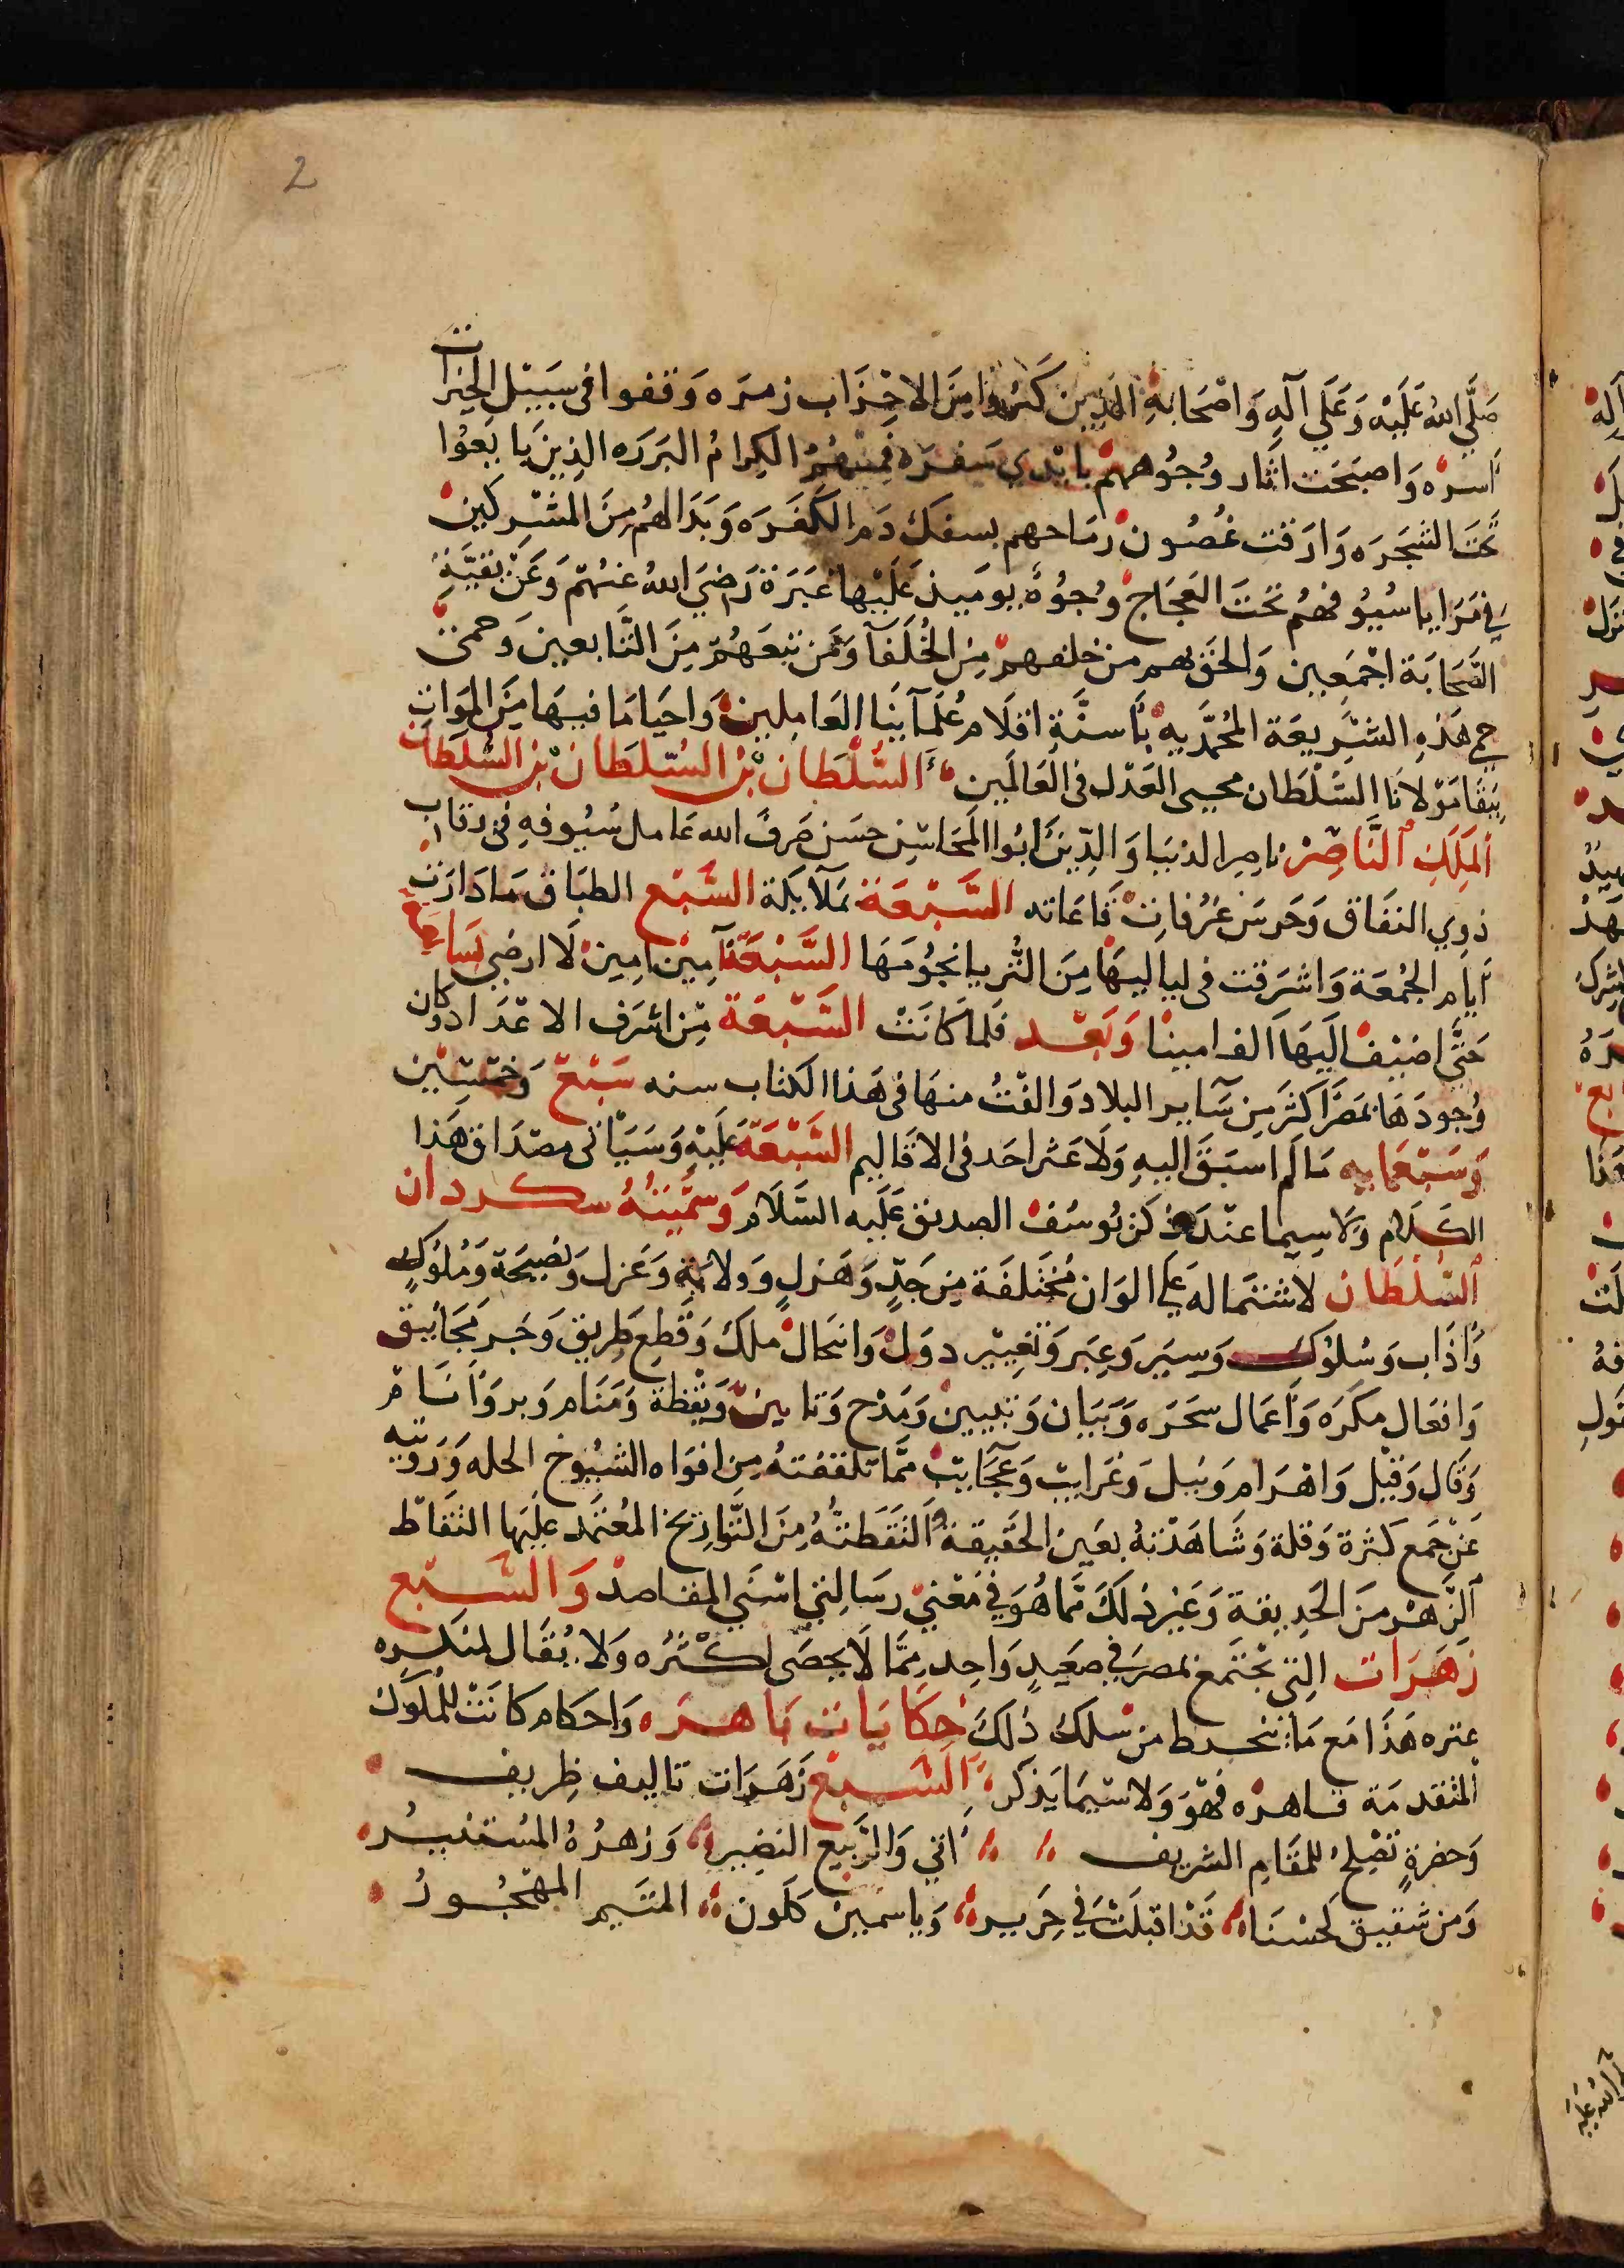 2
صَلَّى اللهُ عَلَيْه وَعَلَى آلِهِ وَاصْحَابِهِ الذين كَسَرُوا مِنَ الاحْزَاب زمرَه وَقفوا فى سَبيْل الخيرات
أسره وَاصبَحَت اثار وُجُوههم بايْدي سَفرَه فمنهُمُ الكِرامُ البَررَه الذِينَ بَايَعُوا
تحتَ الشجَرَه وَاورَقت غُصُون رمَاحهم بسفك دَم الكفَرَه وَبَدَا لهُم مِنَ المشْركين
فِي مَرَايا سُيُوفهُم تحْتَ العَجَاج وُجُوُهٌ يوميذ عَلَيْها غَبَرَة رَضِيَ اللهُ عَنهُمْ وَعَنْ بَقيَّةِ
الصَّحَابَة اجْمَعِين وَالحقَ بهم من خلفهم مِنَ الخُلَفآ وَمَن تبعَهُمْ مِنَ التَّابعين وَحمى
حمى هَذِهِ الشرِيعَة المُحمَّديه بَاسنَّةِ اقلَام عُلمَآينَا العَامِلين وَاحيَا مَا فيهَا مِنَ المَوَات
ببَقَا مَوْلانَا السُّلْطَان محيى العَدْل فى العَالمَين السُّلْطَان بْن السُّلطَان بْن السُّلطَان
المَلِكِ النَّاصِرْ ناصِر الدنيَا وَالدِّين ابُوا المَحَاسِن حسَن صَرفَ الله عَامل سُيُوفهِ فى رقاب
ذوِي النفَاق وَحَرسَ غُرُفاتْ قَاعَاته السَّبْعَة بمَلآيكَة السَّبْع الطبَاق مَا دَارَت
أيام الجُمْعَة وَاشرَقت فى لياليهَا مِنَ الثُّريا نجُوُمَهَا السَّبْعَة آمِيْن امِينْ لَا ارضى بسَاعَةٍ
حَتَّى اضيْف اليَهَا الف امينْا وَبَعْد فلمَّا كانَتْ السَّبْعَة مِنْ اشرَف الاعْدَاد وَكان
وُجودهَا بمَصْرَ اكثَر مِن سَآير البلاد وَالفْتُ منهَا فى هَذا الكتاب سنه سَبْعْ وَخَمْسِيْن
وَسَبْعمَايه مَا لم اسبَقَ اليهِ وَلَا عَثر احَد فى الاقاليم السَّبْعَة عَليَهِ وَسَيَاتى مصْدَاق هَذا
الكلام وَلَا سِيما عنْدَ ذكر يُوسُف الصديق عَلَيه السَّلَام وَسَمَّيتهُ سكردان
السُّلطَان لاشتمَاله عَلى الوَان مُختَلفَة مِن جَدٍّ وَهَزلٍ وَولايةٍ وَعَزل وَنصِيحَة وَمُلوُكٍ
وَآدَاب وَسُلوُك وَسِيَر وَعِبَر وَتَغِييْر دوَلْ وَانتحَال ملك وَقَطع طَرِيق وَجَر مَجَانيق
وَافعَال مكَرَه وَاعْمَال سَحَرَه وَبَيَان وَتبيين وَمَدْح وَتابين وَيَقْظة وَمَنَام وَبر وَآثَام
وَقَال وَقيْل وَاهْرَام وَنيل وَغرَايب وَعجَآيبْ ممَّا تلقفتهُ مِن افوَاه الشيُوخ الجله وَرَوَيته
عَنْ جَمع كثرة وَقلة وَشَاهَدْتهُ بعَين الحَقيقة وَالتَقَطتْهُ مِنَ التَّوارِيخ المُعتمَد عليَها التقَاط
الزَّهْر مِنَ الحَدِيقة وَغيْر ذلكَ مَّمَا هُوَ فِي مَعْنى رسَالتي اسْنَى المقَاصدْ وَالسَّبْع
زَهَرَات التِي تجْتمع بمصرَ فِي صَعِيدٍ وَاحِد مِمَّا لَا يحصَى كثرُه وَلا يُقَال لمنكسره
عتره هَذَا مَع مَا ينخرط من سلك ذلكَ حكَايَات بَاهرَه وَاحكام كانَتْ للمُلوك
المتقدمَة قاهرَه فهُوَ وَلا سيَّمَا يذكر السَّبْعْ زَهَرَات تاليف ظِريف
وَحضرةٍ تَصْلحُ للمقَامِ الشريف اتي وَالرَّبيع النضِير وَزهرُهُ المُستنيرُ
وَمن شقيق لحسْنَاه قَدْ اقبَلَتْ في حَرِير وَياسمين كلَون المتَيم المهْجُورُ